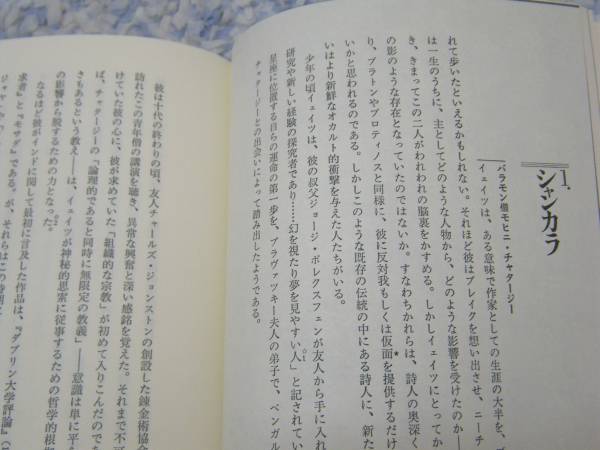 1.
シャンカラ
バラモン僧モヒニ・チャタージー
イェイツは、ある意味で作家としての生涯の大半を、ブ
れて歩いたといえるかもしれない。それほど彼はブレイクを想い出させ、ニーチ
は一生のうちに、主としてどのような人物から、どのような影響を受けたのか――
き、きまってこの二人がわれわれの脳裏をかすめる。しかしイェイツにとってか
の影のような存在となっていたのではないか。すなわちかれらは、詩人の奥深く
り、プラトンやプロティノスと同様に、彼に反対我もしくは仮面を提供するだけ
いかと思われるのである。しかしこのような既存の伝統の中にある詩人に、新た
いはより新鮮なオカルト的衝撃を与えた人たちがいる。
少年の頃イェイツは、彼の叔父ジョージ・ポレクスフェンが友人から手に入れ
研究や新しい経験の探究者であり……幻を視たり夢を見やすい人」と記されてい
星座に位置する自らの運命の第一歩を、ブラヴァツキー夫人の弟子で、ベンガル
チャタージーとの出会いによって踏み出したようである。
彼は十代の終わりの頃、友人チャールズ・ジョンストンの創設した錬金術協会
訪れたこの青年僧の講演を聴き、異常な興奮と深い感銘を覚えた。それまで不可
けていた彼の心に、彼が求めていた「組織的な宗教」が初めて入りこんだのであ
ば、チャタージーの「論理的であると同時に無限定の教義」――意識は単に平
さもあるという教え――は、イェイツが神秘的思索に従事するための哲学的根拠
の影響から脱するための力となった。
なるほど彼がインドに関して最初に言及した作品は、『ダブリン大学評論』（
求者』と『モサダ』である。が、それらはこの時期に